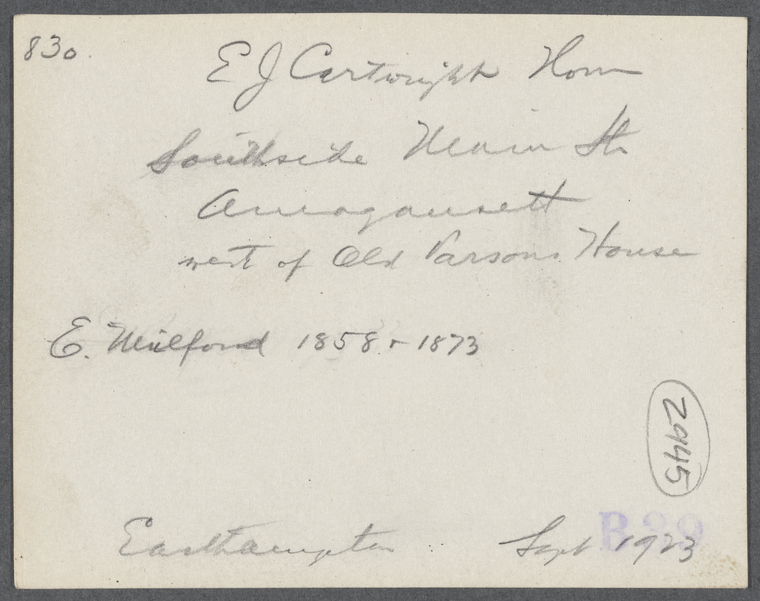 830.
E J Cartwright Hom
Southside Main St.
Amagansett
west of Old Parsons House
E. Mulford 1858 + 1873
2945
Easthampton Sept 1923
B29